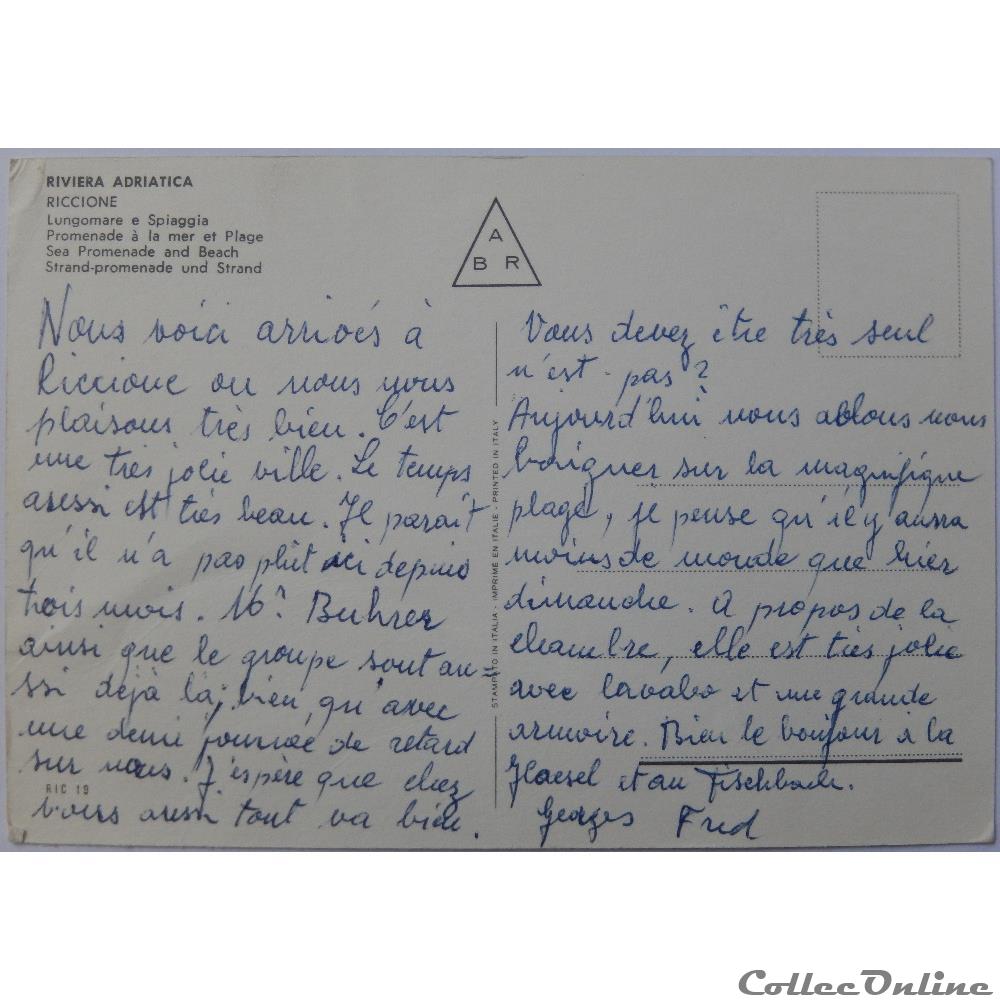 RIVIERA ADRIATICA
RICCIONE
Lungomare e Spiaggia
Promenade à la mer et Plage
Sea Promenade and Beach
Strand-promenade und Strand
A
B R
Nous voici arrivés à
Riccione ou nous nous
plaisons très bien. C'est
une très jolie ville. Le temps
aussi est très beau. Il parait
qu'il n'a pas plût ici depuis
trois mois. Mr Buhrer
ainsi que le groupe sont au=
ssi déjà là, bien qu'avec
une demi journée de retard
sur nous. J'espère que chez
vous aussi tout va bien.
RIC 19
STAMPATO IN ITALIA - IMPRIMÉ EN ITALIE - PRINTED IN ITALY
Vous devez être très seul
n'est-pas?
Aujourd'hui nous allons nous
baigner sur la magnifique
plage, je pense qu'il y aura
moins de monde que hier
dimanche. A propos de la
chambre, elle est très jolie
avec lavabo et une grande
armoire. Bien le bonjour à la
et au Fischbach.
Georges Fred
CollecOnline